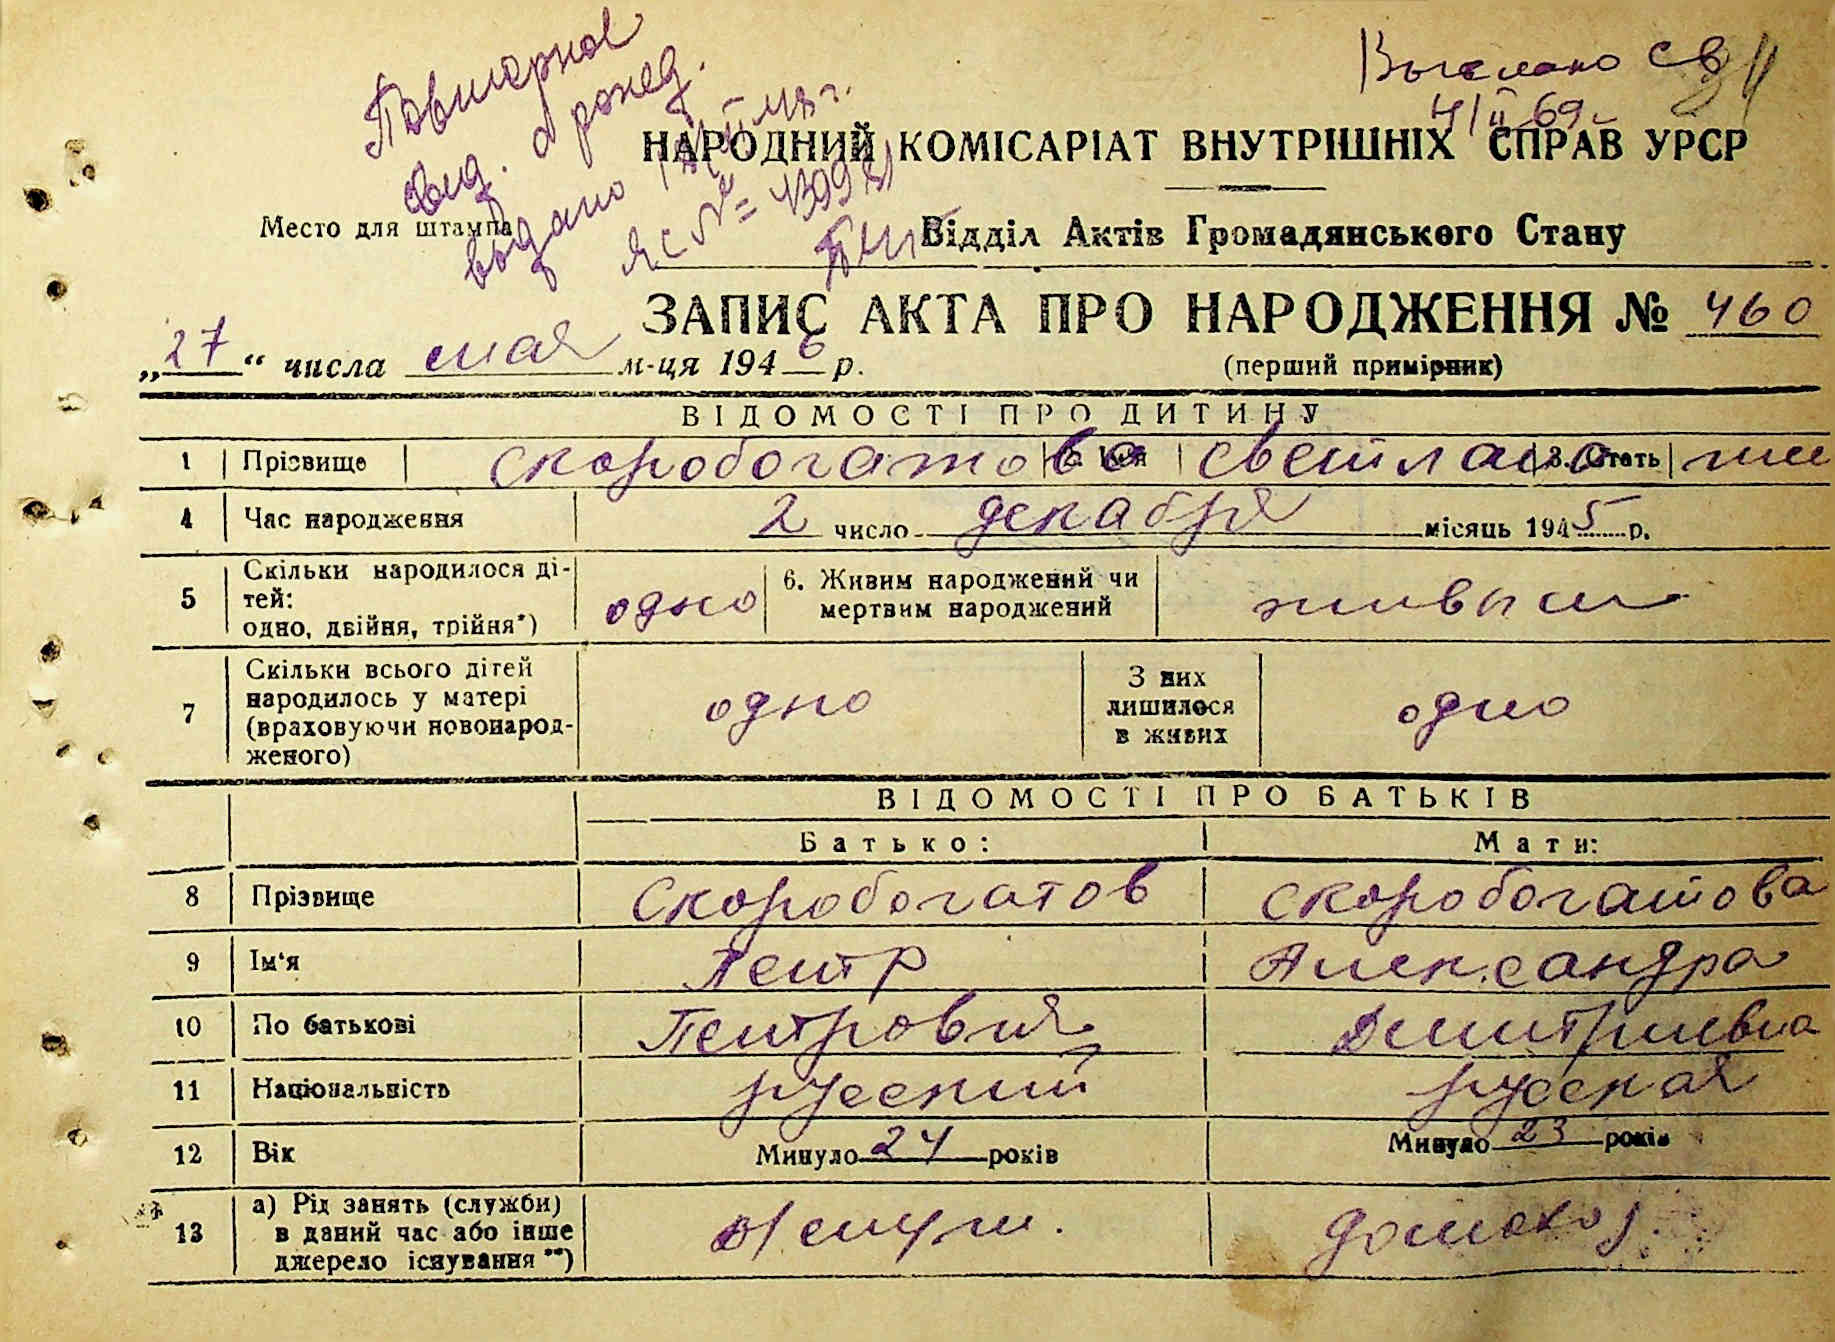 Повторное
свид. о рожд.
выдано
ЯС №
Выслано св
4/II 69 г.
НАРОДНИЙ КОМІСАРІАТ ВНУТРІШНІХ СПРАВ УРСР
Место для штампа
Відділ Актів Громадянського Стану
ЗАПИС АКТА ПРО НАРОДЖЕННЯ № 460
„27“ числа мая м-ця 1946 р. (перший примірник)
ВІДОМОСТІ ПРО ДИТИНУ
1 Прізвище Скоробогатова 2. Ім'я Светлана 3. Стать жен
4 Час народження 2 число декабря місяць 1945 р.
5 Скільки народилося ді-
тей:
одно, двійня, трійня*) одно 6. Живим народжений чи
мертвим народжений живым
7 Скільки всього дітей
народилось у матері
(враховуючи новонарод-
женого) одно З них
лишилося
в живих одно
ВІДОМОСТІ ПРО БАТЬКІВ
Батько: Мати:
8 Прізвище Скоробогатов Скоробогатова
9 Ім'я Петр Александра
10 По батькові Петрович Дмитриевна
11 Національність русский русская
12 Вік Минуло 24 років Минуло 23 років
13 а) Рід занять (служби)
в даний час або інше
джерело існування **) в/служ. домохоз.